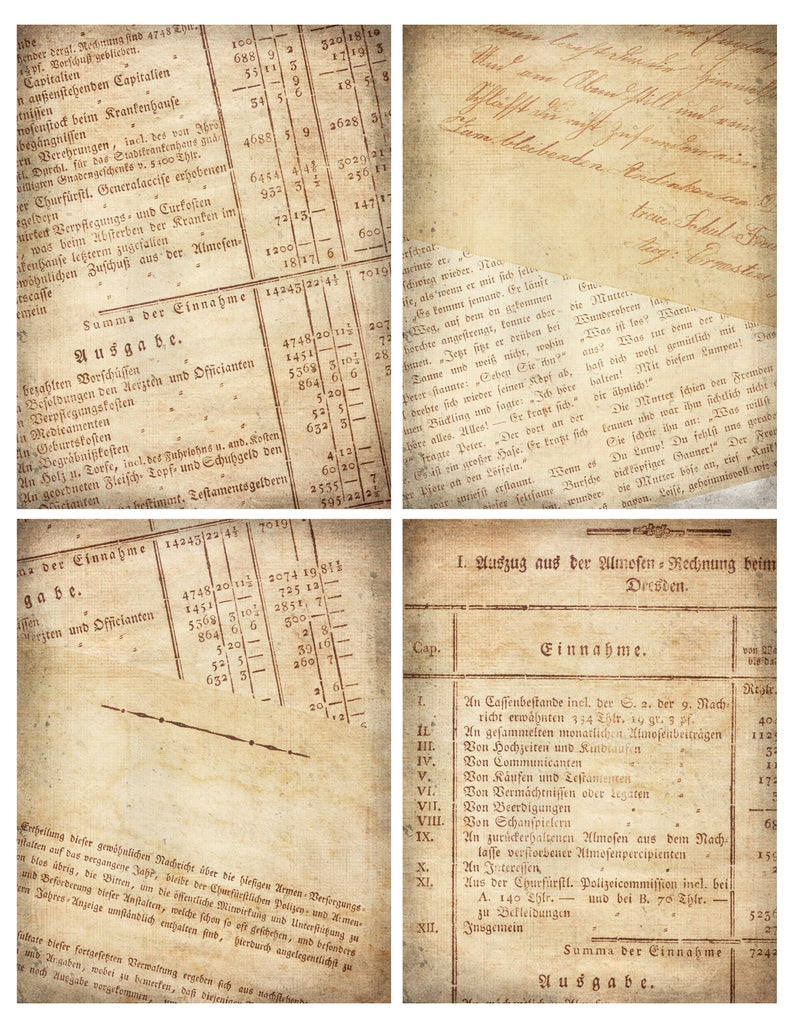 nde
hender dergl. Rechnung sind 4748 Thlr.
19 pf. Vorschuß geblieben. 100 — — 320 18 10
Capitalien 688 9 2 17 19
n außenstehenden Capitalien 55 11 3
tnissen — 9 18
mosenstock beim Krankenhause 34 5 6
begängnissen
rn Verehrungen, incl. des von Ihro 2628 3
tl. Durchl. für das Stadtkrankenhaus gnä-
willigten Gnadengeschenks v. 5400 Thlr. 4688 5 9
er Churfürstl. Generalaccise erhobenen 3029 21
gegeldern 6454 4 4½ 256 11
uirten Verpflegungs- und Curkosten 932 3 ½
was beim Absterben der Kranken im 147 17
akenhause letzterm zugefallen 72 13 —
wöhnlichen Zuschuß aus der Almosen- 600 —
tscasse 1200 — —
gemein 18 17 6
Summa der Einnahme 14243 22 4½ 7019
Ausgabe.
bezahlten Vorschüssen 4748 20 11½ 207
n Besoldungen den Aerzten und Officianten 1451 — — 72
n Verpflegungskosten 5368 3 10½ 285
n Medicamenten 864 6 6
An Geburtskosten 5 20 —
An Begräbnißkosten 52 5 —
An Holz u. Torfe, incl. des Fuhrlohns u. and. Kosten 632 3 —
An geordneten Fleisch-, Topf- und Schuhgeld den
Officianten 4 12 —
bestimmt. Testamentsgeldern 60 20 —
2535 — —
595 22 2½
Und am Abend still und
Schläfst du nicht zufrieden ein.
Zum bleibenden Andenken an
treue Schul-Fre
schwieg wieder.
se, als wenn er mit sich selbst
„Es kommt jemand. Er läuft
Weg, auf dem du gekommen
horchte angestrengt, konnte aber
hnen. „Jetzt sitzt er drüben bei
Tanne und weiß nicht, wohin
Peter staunte: „Sehen Sie ihn?“
drehte sich wieder seinen Kopf ab,
einen Bückling und sagte: „Ich höre
höre alles. Alles! — Er kratzt sich.“
fragte Peter. „Der dort an der
Es ist ein großer Hase. Er kratzt sich
Pfote an den Löffeln.“
war zutiefst erstaunt. Wenn es
dieser seltsame Bursche
wunder-
die Mutter.
Wunderohren
„Was ist los? Warum
aus? Was tut denn der
hast dich wohl gemütlich mit ihm
halten! Mit diesem Lumpen! Das
dir ähnlich!“
Die Mutter schien den Fremden
kennen und war ihm sichtlich nicht
Sie schrie ihn an: „Was willst
Du Lump! Du fehlst uns gerade
dickköpfiger Gauner!“ Der Fre
die Mutter böse an, rief „Knik
davon. Leise, geheimnisvoll wie e
ma der Einnahme 14243 22 4½ 7019
gabe.
üssen 4748 20 11½ 2074 19 8½
Aerzten und Officianten 1451 — — 725 12
5368 3 10½ 2851 7 —
864 6 6 300 — —
5 20 — 2 8 —
52 5 — 39 16 —
632 3 — 260 7
2 6
20 —
12 —
Ertheilung dieser gewöhnlichen Nachricht über die hiesigen Armen-Versorgungs-
nstalten auf das vergangene Jahr, bleibt der Churfürstlichen Polizey- und Armen-
on blos übrig, die Bitten, um die öffentliche Mitwirkung und Unterstützung zu
und Beförderung dieser Anstalten, welche schon so oft geschehen, und besonders
em Jahres-Anzeige umständlich enthalten sind, hierdurch angelegentlichst zu
sultate dieser fortgesetzten Verwaltung ergeben sich aus nachstehende
und Angaben, wobei zu bemerken, daß diejenigen
te noch Ausgabe vorgekommen, um
I. Auszug aus der Almosen-Rechnung beim
Dresden.
Cap. Einnahme. von
bis da
Rthlr.
I. An Cassenbestande incl. der S. 2. der 9. Nach-
richt erwähnten 334 Thlr. 19 gr. 3 pf. 404
II. An gesammelten monatlichen Almosenbeiträgen 1129
III. Von Hochzeiten und Kindtaufen 32
IV. Von Communicanten 11
V. Von Käufen und Testamenten 172
VI. Von Vermächtnissen oder Legaten 3
VII. Von Beerdigungen —
VIII. Von Schauspielern 68
IX. An zurückerhaltenen Almosen aus dem Nach-
lasse verstorbener Almosenpercipienten 159
X. An Interessen
XI. Aus der Churfürstl. Polizeicommission incl. bei
A. 140 Thlr. — und bei B. 70 Thlr. —
zu Bekleidungen 5236
XII. Insgemein 27
Summa der Einnahme 7242
Ausgabe.